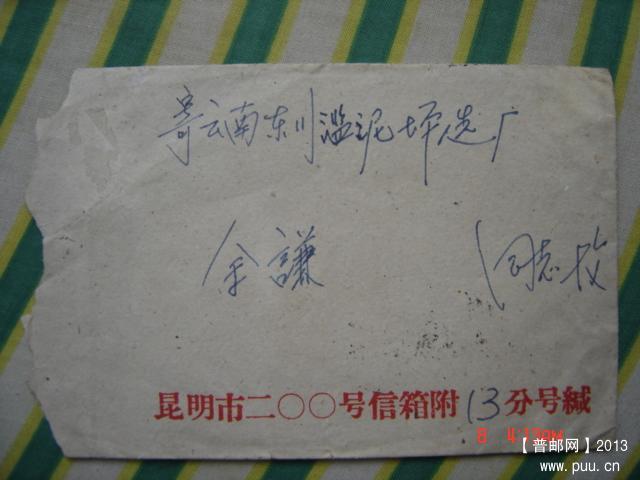 寄云南东川滥泥坪选厂
余謙 同志收
昆明市二〇〇号信箱附13分号缄
8 4:17PM
【普邮网】2013
www.puu.cn